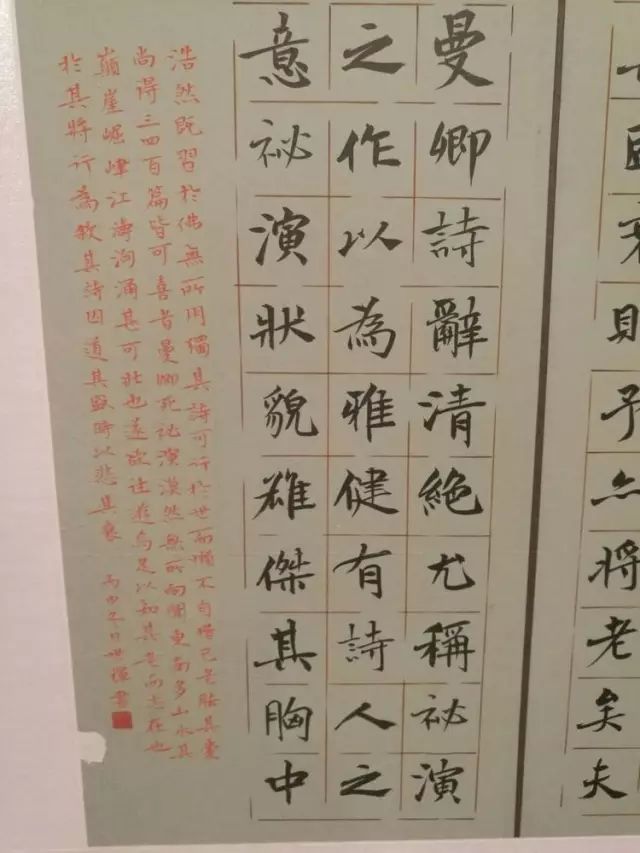 則予亦將老矣夫
曼卿詩辭清絕尤稱祕演
之作以為雅健有詩人之
意祕演狀貌雄傑其胸中
浩然既習於佛無所用獨其詩可行於世而懶不自惜已老胠其橐
尚得三四百篇皆可喜者曼卿死祕演漠然無所向聞東南多山水其
巔崖崛峍江濤洶涌甚可壯也遂欲往遊焉足以知其老而志在也
於其將行為敘其詩因道其盛時以悲其衰 丙申冬日世輝書